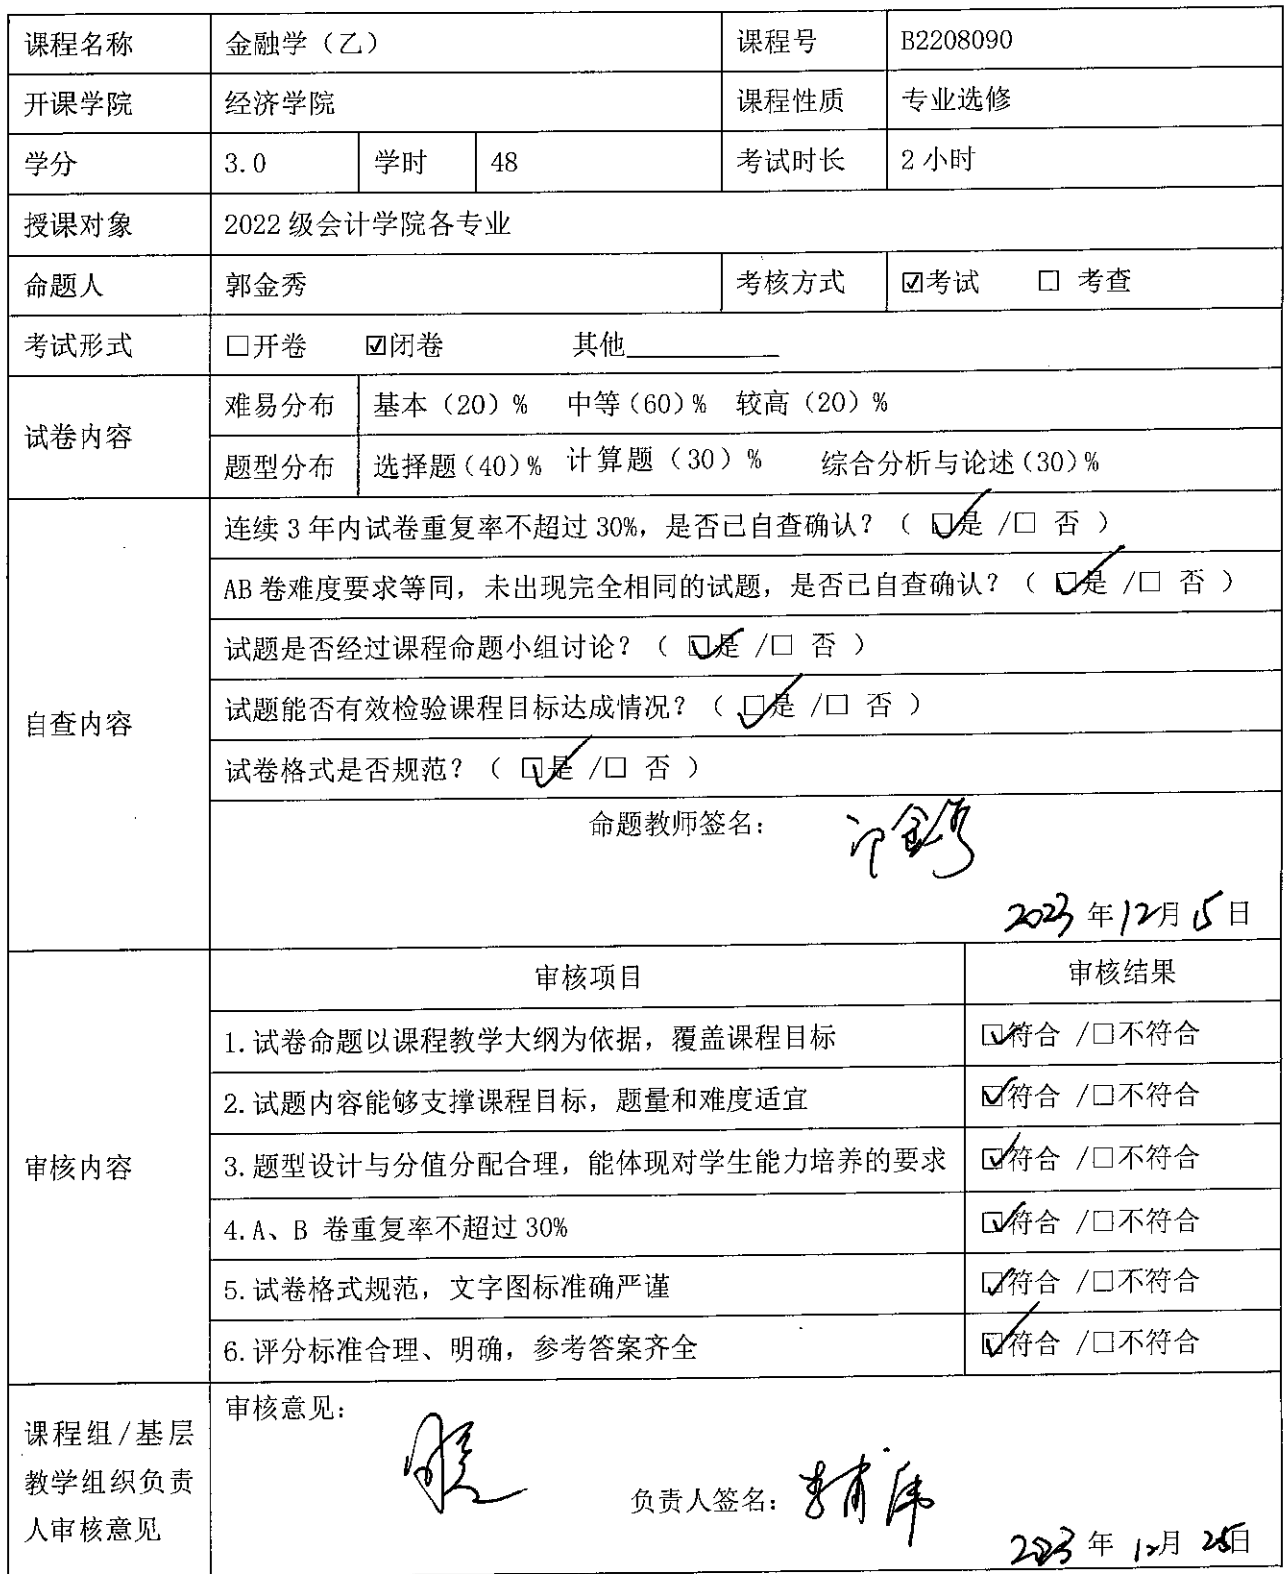 课程名称 金融学（乙） 课程号 B2208090
开课学院 经济学院 课程性质 专业选修
学分 3.0 学时 48 考试时长 2 小时
授课对象 2022 级会计学院各专业
命题人 郭金秀 考核方式 ☑考试 □ 考查
考试形式 □开卷 ☑闭卷 其他
试卷内容 难易分布 基本（20）% 中等（60）% 较高（20）%
题型分布 选择题（40）% 计算题（30）% 综合分析与论述（30）%
自查内容
连续 3 年内试卷重复率不超过 30%，是否己自查确认？（ ☑是 /□ 否 ）
AB 卷难度要求等同，未出现完全相同的试题，是否己自查确认？（ ☑是 /□ 否 ）
试题是否经过课程命题小组讨论？（ ☑是 /□ 否 ）
试题能否有效检验课程目标达成情况？（ ☑是 /□ 否 ）
试卷格式是否规范？（ ☑是 /□ 否 ）
命题教师签名：
2023 年 12 月 15 日
审核内容
审核项目 审核结果
1.试卷命题以课程教学大纲为依据，覆盖课程目标 ☑符合 /□不符合
2.试题内容能够支撑课程目标，题量和难度适宜 ☑符合 /□不符合
3.题型设计与分值分配合理，能体现对学生能力培养的要求 ☑符合 /□不符合
4.A、B 卷重复率不超过 30% ☑符合 /□不符合
5.试卷格式规范，文字图标准确严谨 ☑符合 /□不符合
6.评分标准合理、明确，参考答案齐全 ☑符合 /□不符合
课程组/基层
教学组织负责
人审核意见
审核意见：
负责人签名：
2023 年 12 月 25 日